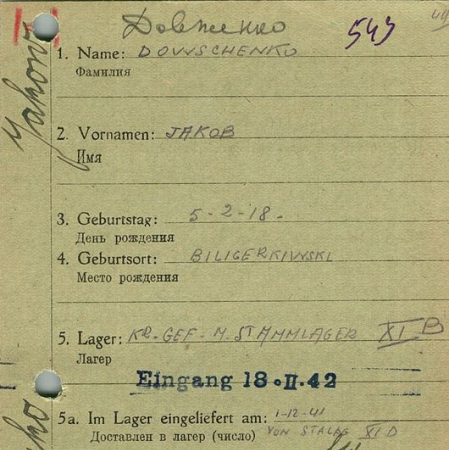 Довженко 543
1. Name: DOWSCHENKO
Фамилия
2. Vornamen: JAKOB
Имя
3. Geburtstag: 5-2-18.
День рождения
4. Geburtsort: BILIGERKIWSKI
Место рождения
5. Lager: KR-GEF-M. STAMMLAGER XI B
Лагер
Eingang 18. II. 42
5a. Im Lager eingeliefert am: 1-12-41
Доставлен в лагер (число) VON STALAG XI D